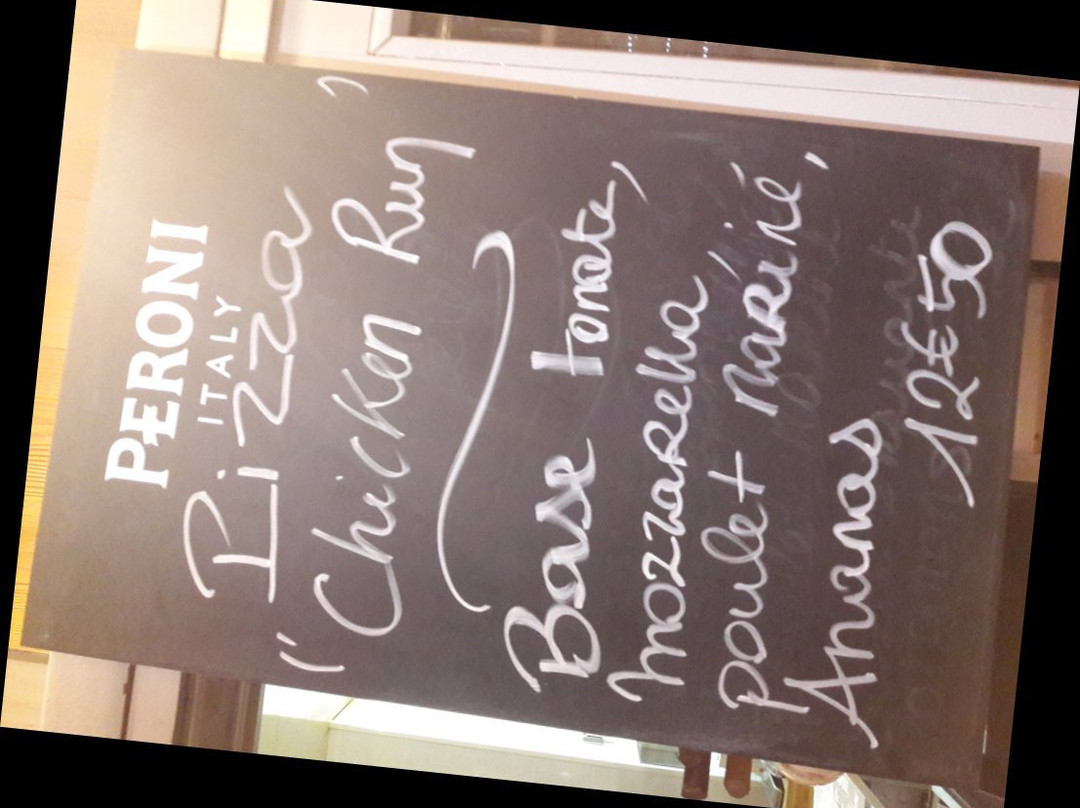 PERONI
ITALY
Pizza
" Chicken Run "
Base tomate,
mozzarella,
poulet mariné,
Ananas
12€50